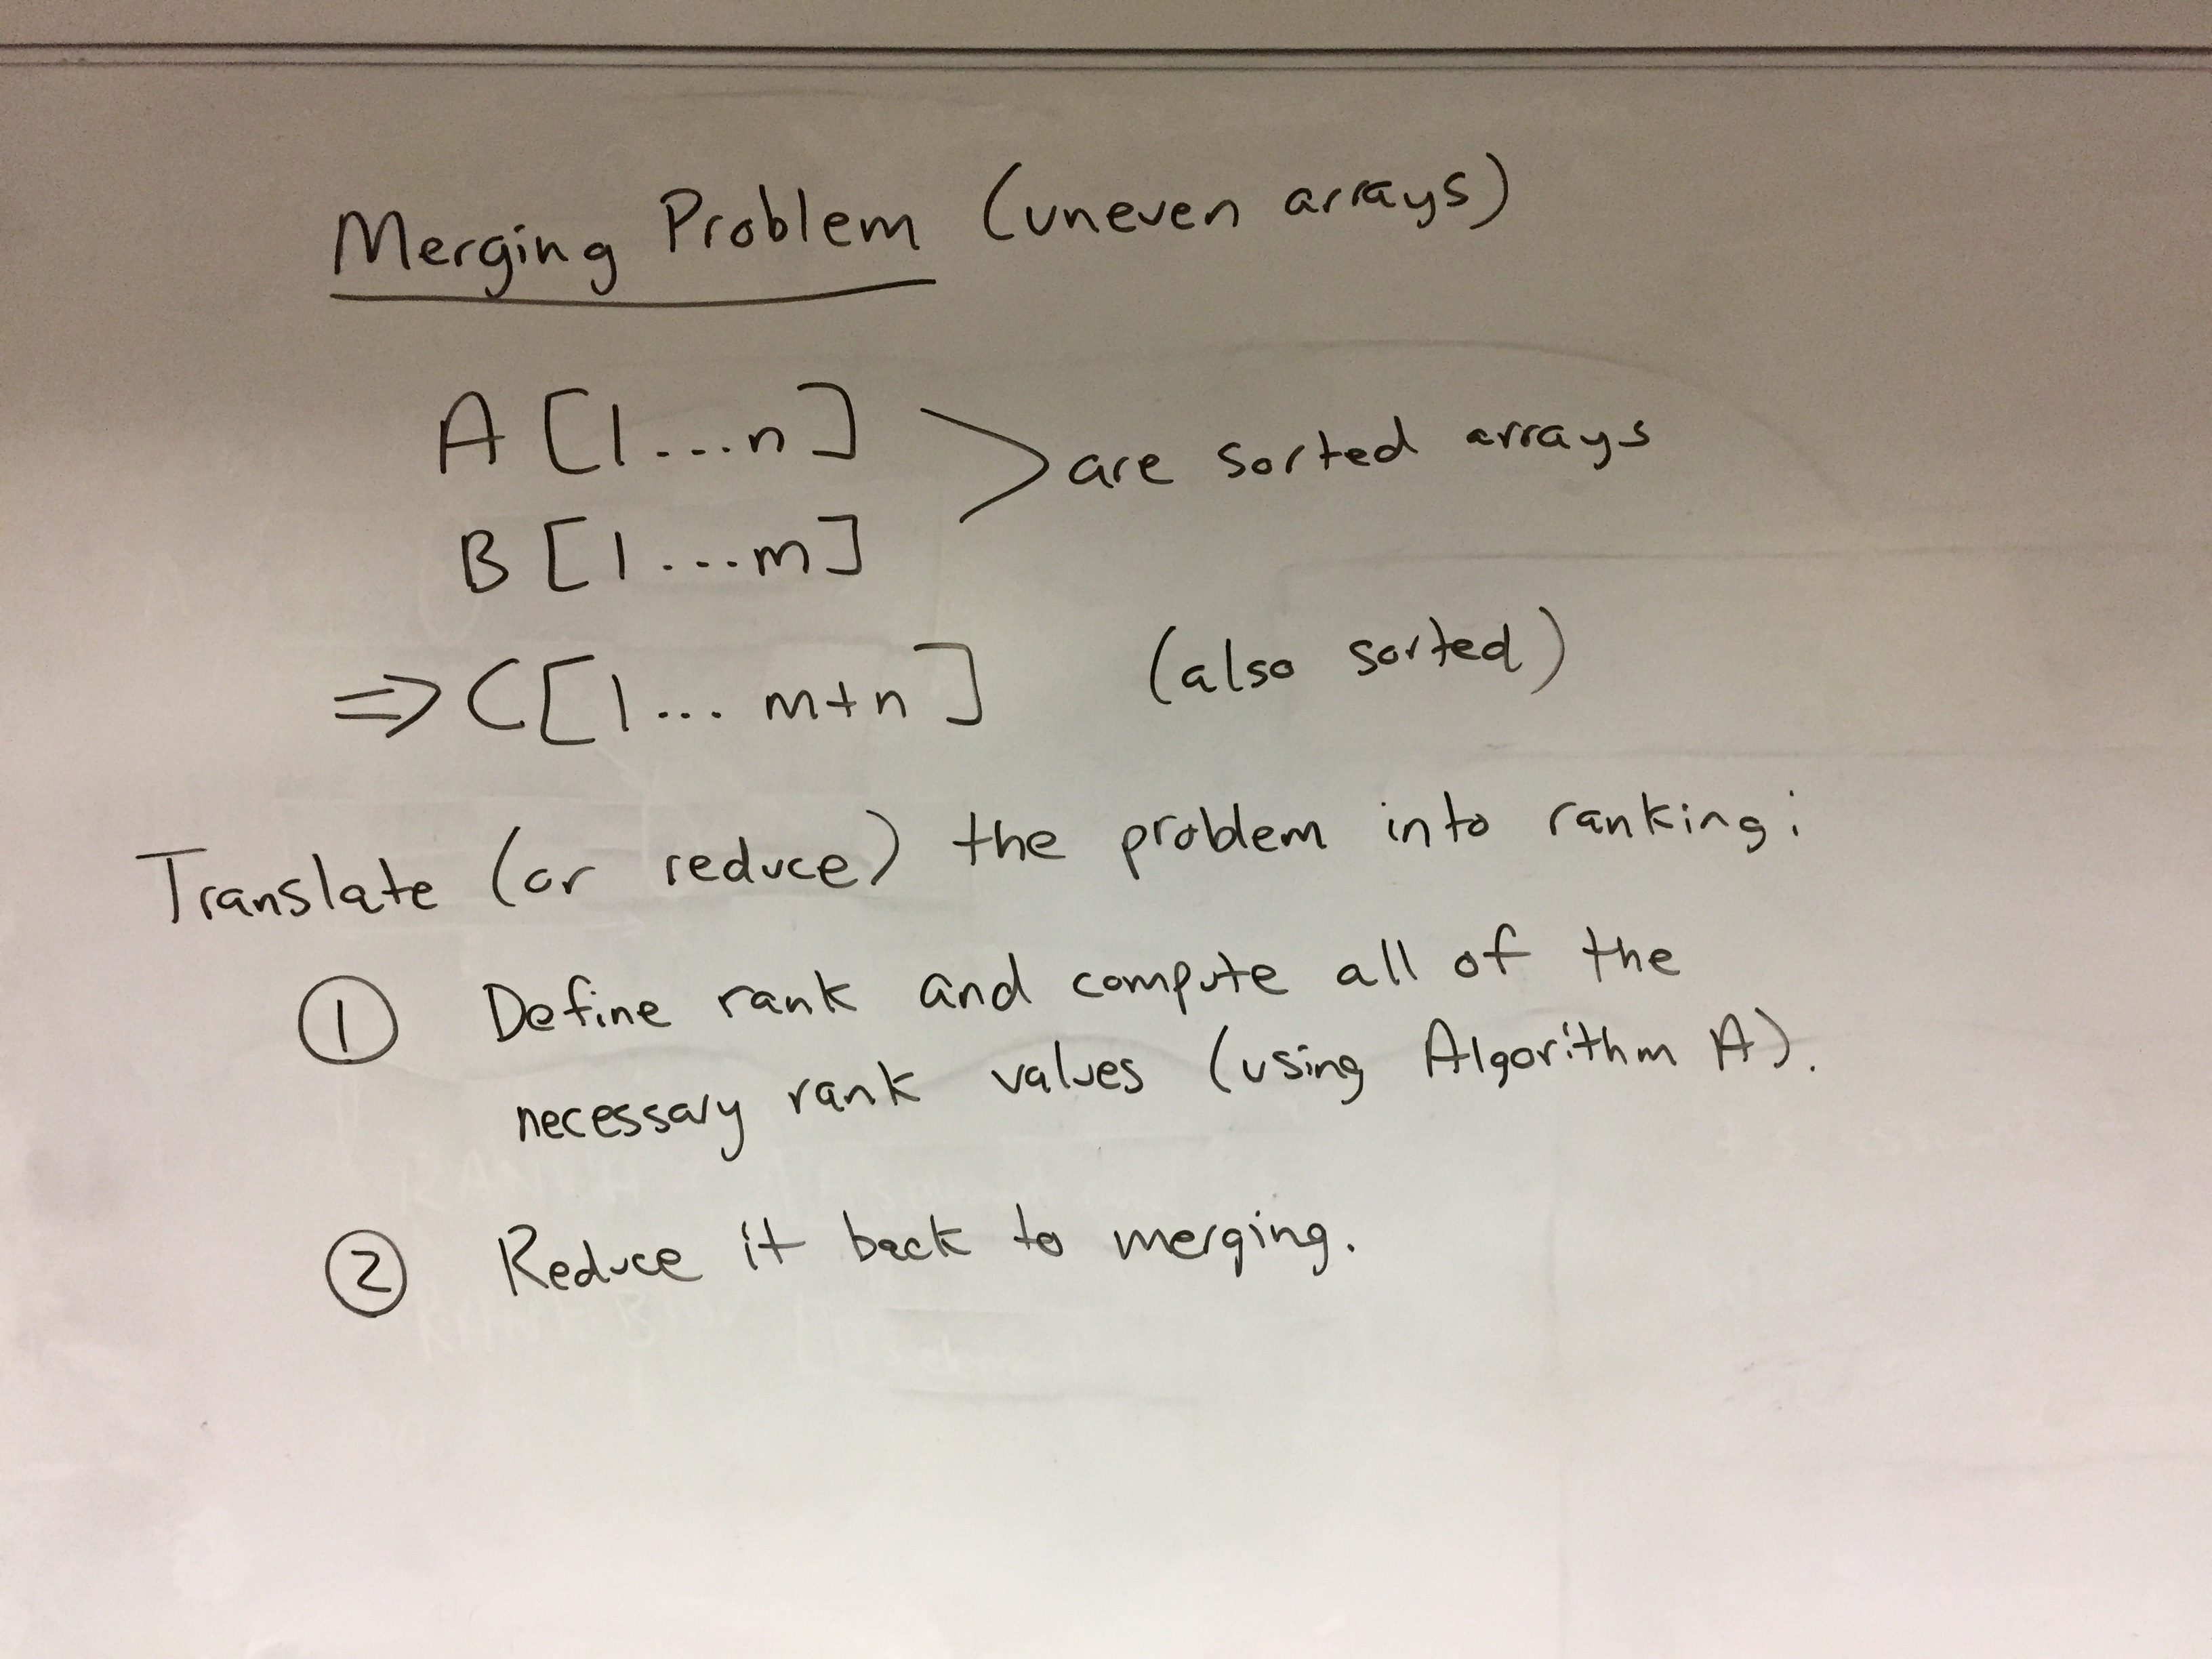 Merging Problem (uneven arrays)
A [1...n]
are sorted arrays
B [1...m]
⇒ C[1... m+n] (also sorted)
Translate (or reduce) the problem into ranking:
① Define rank and compute all of the
necessary rank values (using Algorithm A).
② Reduce it back to merging.